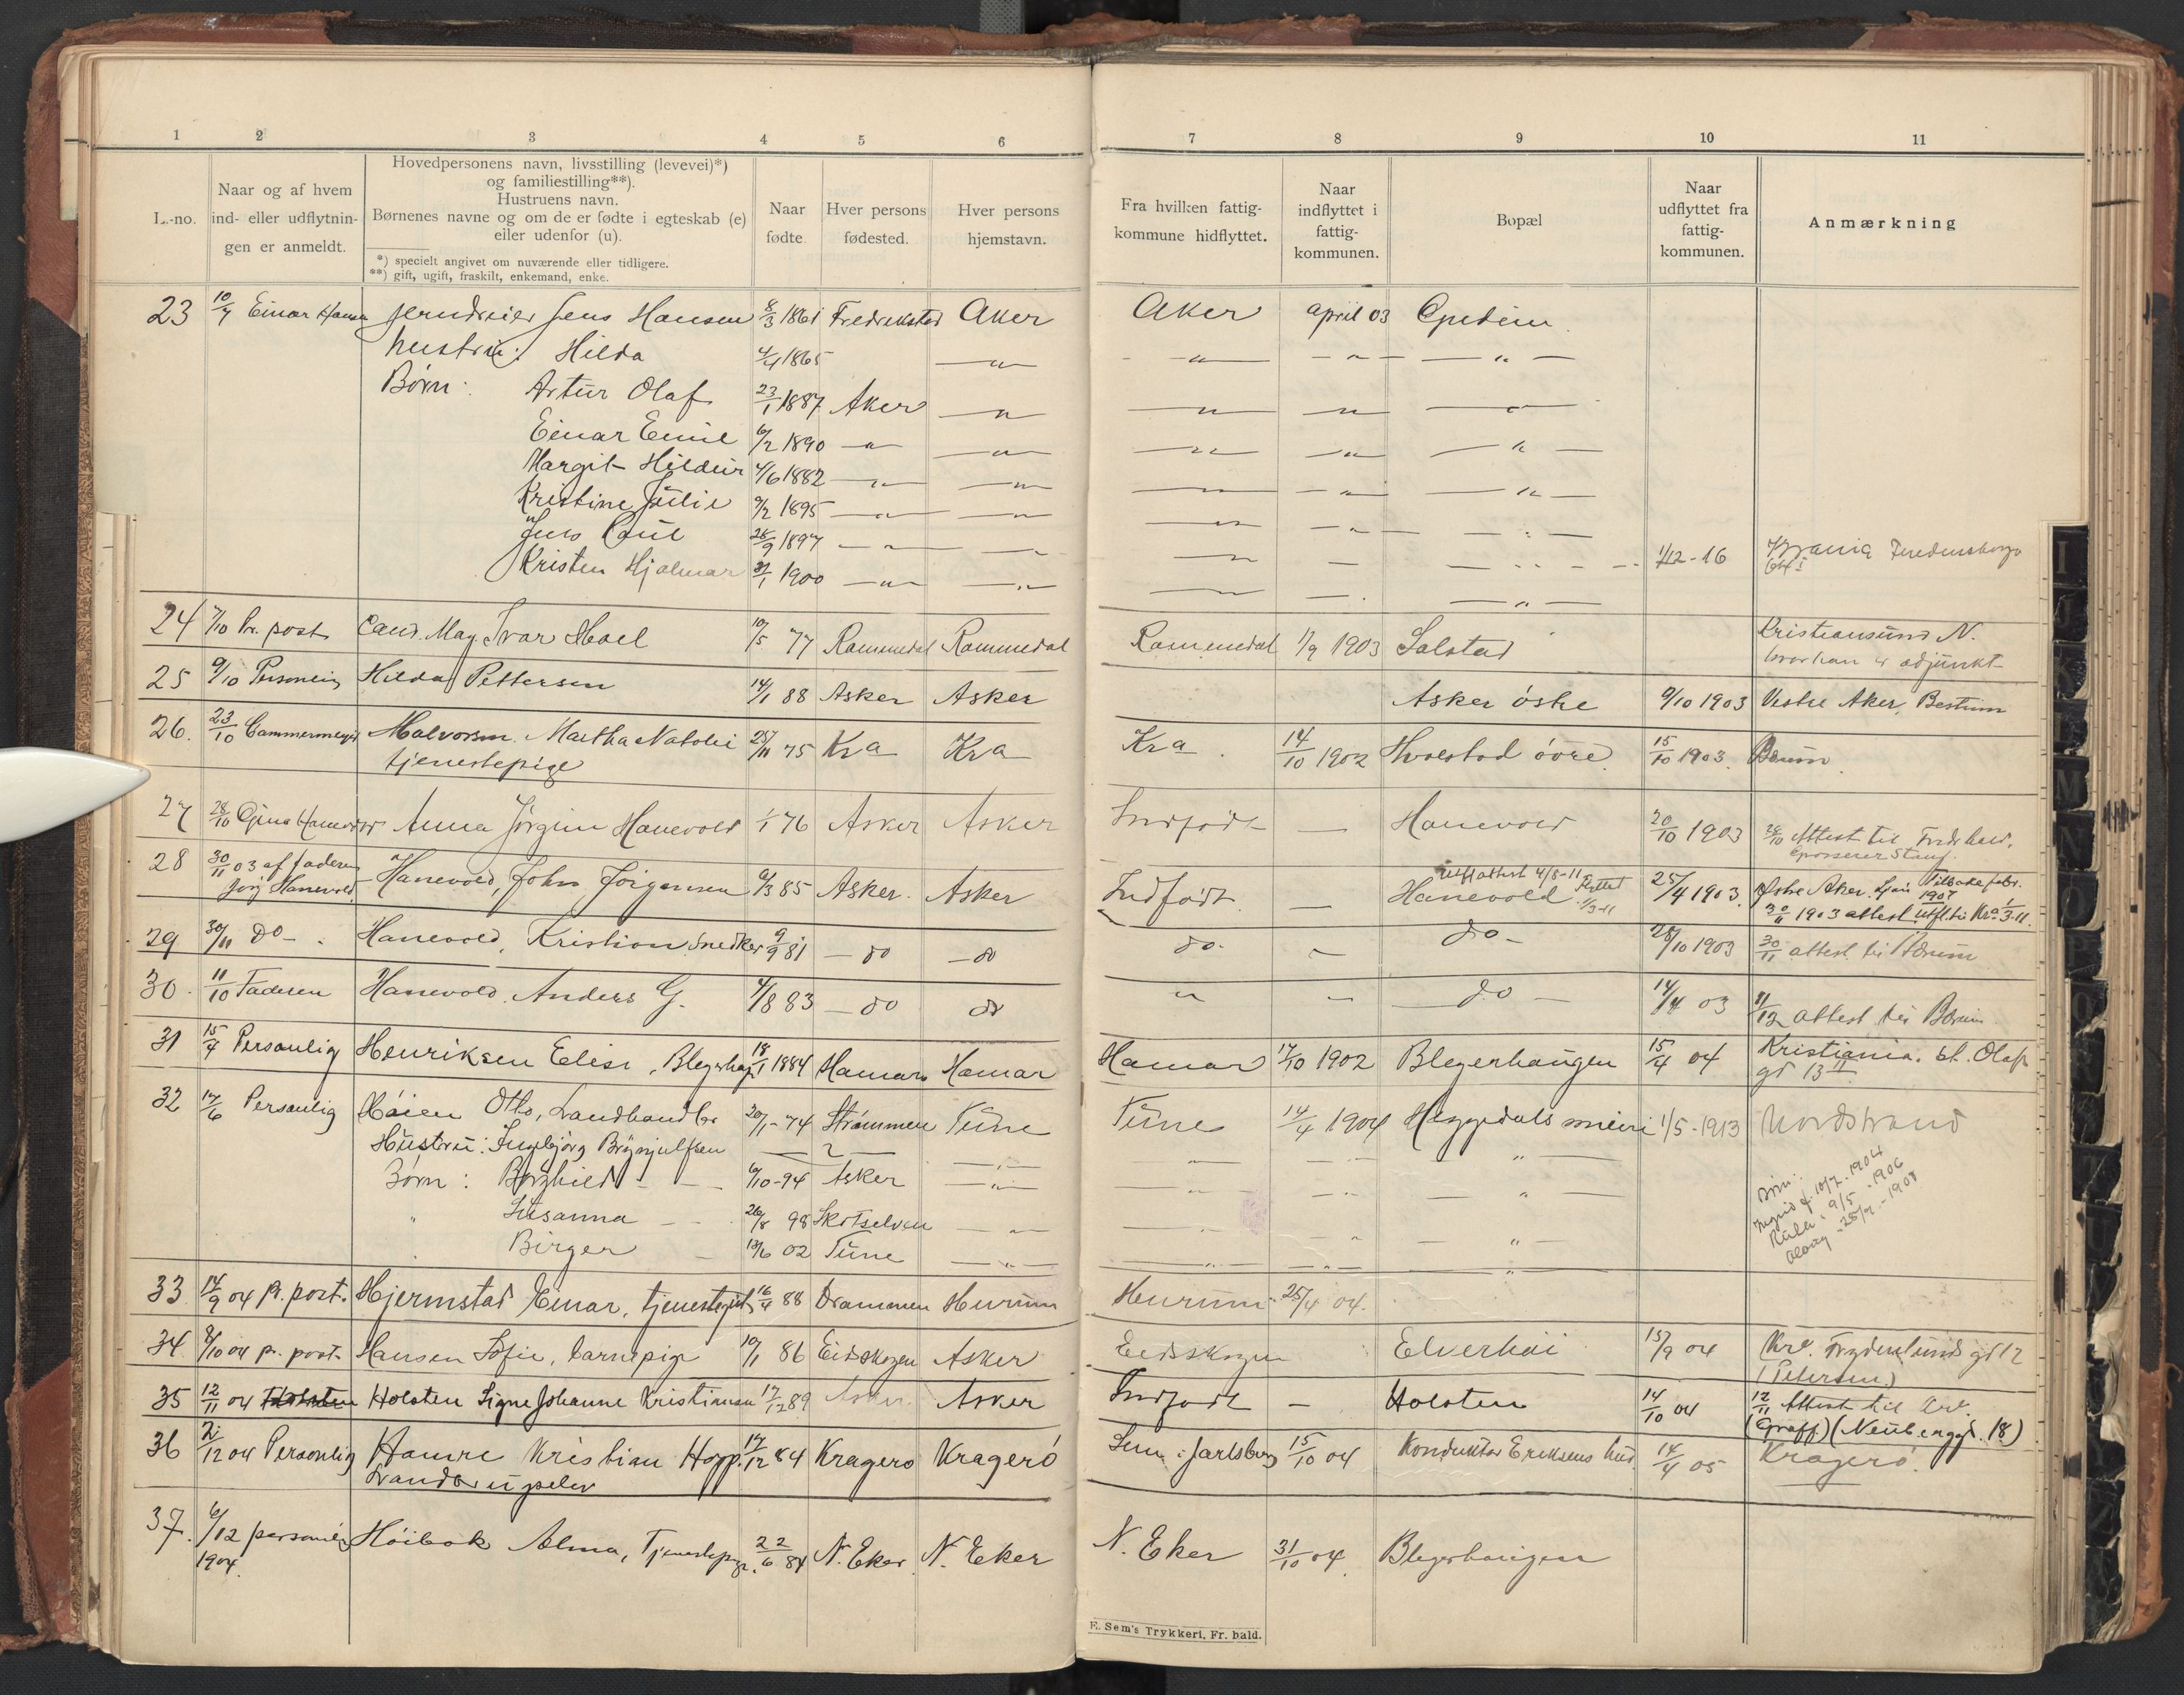 1 2 3 4 5 6 7 8 9 10 11
L.-no.
Naar og af hvem
ind- eller udflytnin-
gen er anmeldt.
Hovedpersonens navn, livsstilling (levevei)*)
og familiestilling**).
Hustruens navn.
Børnenes navne og om de er fødte i egteskab (e)
eller udenfor (u).
*) specielt angivet om nuværende eller tidligere.
**) gift, ugift, fraskilt, enkemand, enke.
Naar
fødte.
Hver persons
fødested.
Hver persons
hjemstavn.
Fra hvilken fattig-
kommune hidflyttet.
Naar
indflyttet i
fattig-
kommunen.
Bopæl
Naar
udflyttet fra
fattig-
kommunen.
Anmærkning
23 10/7 Einar Hansen Jens Hansen 8/3 1861 Fredrekstad Aker Aker april 03
hustru: Hilda 4/4 1865 — " — — " — — " — — " —
Børn: Artur Olaf 23/1 1887 Aker — " — — " — — " — — " —
Einar Emil 6/2 1890 — " — — " — — " — — " — — " —
Margit Hildur 4/6 1882 — " — — " — — " — — " — — " —
Kristine Julie 9/2 1895 — " — — " — — " — — " — — " —
Jens Paul 28/9 1897 — " — — " — — " — 1/12-16
Kristen Hjalmar 31/1 1900 — " — — " — — " — — " —
24 7/10 Pr. post Cand. Mag. Ivar Moel 10/5 77 Rommedal Rommedal Rommedal 1/9 1903 Solstad Kristiansund N.
hvor han er adjunkt
25 9/10 Personlig Hilda Pettersen 14/1 88 Asker Asker Asker østre 9/10 1903 Vestre Aker, Bestum
26. 23/10 Cammermeyer Halvorsen. Martha Natalie 25/11 75 Kra Kra Kra. 14/10 1902 Hvalstad övre 15/10 1903. Bærum
tjenestepige
27 28/10 Gina Hanevold Anna Jörgine Hanevold 1/1 76 Asker Asker Indfødt — Hanevold 20/10 1903 28/10 Attest til Fredr.hald,
28 30/11 03 af faderen Hanevold, John Jörgensen 6/3 85 Asker. Asker Indfødt. — Hanevold 25/4 1903. Østre Aker. Tilbake febr. 1907
Jörg Hanevold. attest 4/3-11 Flyttet 1/3-11 30/11 1903 attest utfl. til Kra. 1/3-11.
29 30/11 do - Hanevold, Kristian Snedker 9/9 81 — do — do do. " do - 28/10 1903 30/11 attest til Bærum
30. 11/10 Faderen Hanevold. Anders G. 4/8 83 — do do " " — do — 14/4 03 11/12 attest til Bærum
31 15/4 Personlig Henriksen Elise, 18/1 1884 Hamar Hamar Hamar 17/10 1902 Blegerhaugen 15/4 04 Kristiania. St. Olafs
gd 13 II
32 17/6 Personlig Høien Otto, Landhandler 20/1-74 Strömmen Tune Tune 14/4 1904 Heggedals 1/5-1913 Nordstrand
Hustru: Ingebjørg Brynjulfsen — ? — — " — " — " — "
Børn: Borghild - — 6/10-94 Asker — " — " — " — "
" Susanna — 26/8 98 Skotselven — " — " — " — "
Birger — 13/6 02 Tune — " — " — " — "
Børn:
Ingrid f. 10/7. 1904
9/5 - 1906
- 28/7 - 1908
33 14/9 04 p. post. Hjermstad Einar, tjenestegut 16/4 88 Drammen Hurum Hurum 25/4 04.
34. 8/10 04 p. post. Hansen Sofie, barnepige 10/1 86 Eidskogen Asker Eidskogen Elverhöi 15/9 04 Kra. Frydenlunds gd 12
(Petersen.)
35 12/11 04 Holsten Holsten Signe Johanne Kristiansen 17/12 89 Asker. Asker Indfødt — Holsten 14/10 04 12/11 Attest til Kra.
(Graff) (Neubergsgd. 18)
36 2/12 04 Personlig Hamre Kristian Hopp. 17/12 84 Kragerø Kragerö Sem i Jarlsberg 15/10 04 Konduktør Eriksens hus. 14/4 05 Kragerö.
37. 6/12 personlig Høibak Alma, Tjenestepige. 22/6 84 N. Eker. N. Eker N. Eker 31/10 04. Blegerhaugen
1904.
E. Sem's Trykkeri, Fr.hald.
I
J
K
L
M
N
O
P